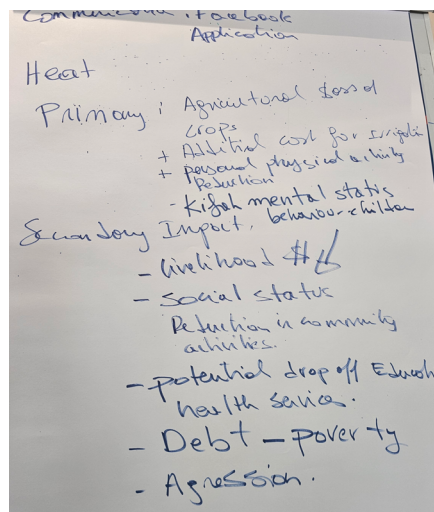 Communication, Facebook
Application
Heat
Primary: Agricultural Loss of
crops
+ Additinal cost for Irrigatin
+ personal physical activity
Reduction
- Kifah mental status
behaviour-children
Secondary Impact.
- livelihood $
- Social status
Reduction in community
activities.
- potential drop off Educati
health services.
- Debt - poverty
- Agression.